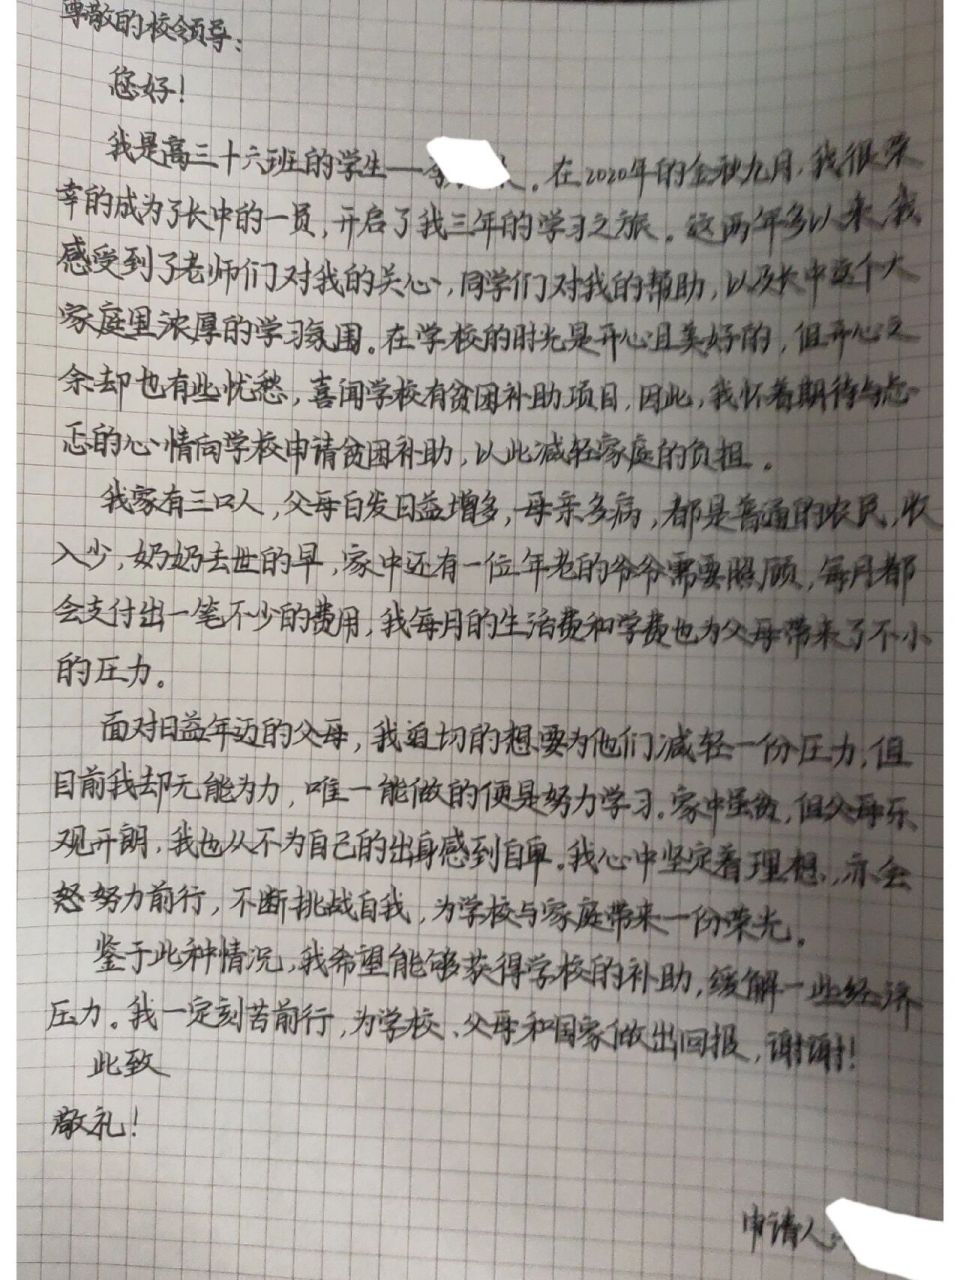 尊敬的校领导:
您好!
我是高三十六班的学生——。在2020年的金秋九月,我很荣
幸的成为了长中的一员,开启了我三年的学习之旅。这两年多以来,我
感受到了老师们对我的关心,同学们对我的帮助,以及长中这个大
家庭里浓厚的学习氛围。在学校的时光是开心且美好的,但开心之
余却也有些忧愁,喜闻学校有贫困补助项目,因此,我怀着期待与忐
忑的心情向学校申请贫困补助,以此减轻家庭的负担。
我家有三口人,父母白发日益增多,母亲多病,都是普通的农民,收
入少,奶奶去世的早,家中还有一位年老的爷爷需要照顾,每月都
会支付出一笔不少的费用,我每月的生活费和学费也为父母带来了不小
的压力。
面对日益年迈的父母,我迫切的想要为他们减轻一份压力,但
目前我却无能为力,唯一能做的便是努力学习。家中虽贫,但父母乐
观开朗,我也从不为自己的出身感到自卑。我心中坚定着理想,亦会
努力前行,不断挑战自我,为学校与家庭带来一份荣光。
鉴于此种情况,我希望能够获得学校的补助,缓解一些经济
压力。我一定刻苦前行,为学校、父母和国家做出回报,谢谢!
此致
敬礼!
申请人: